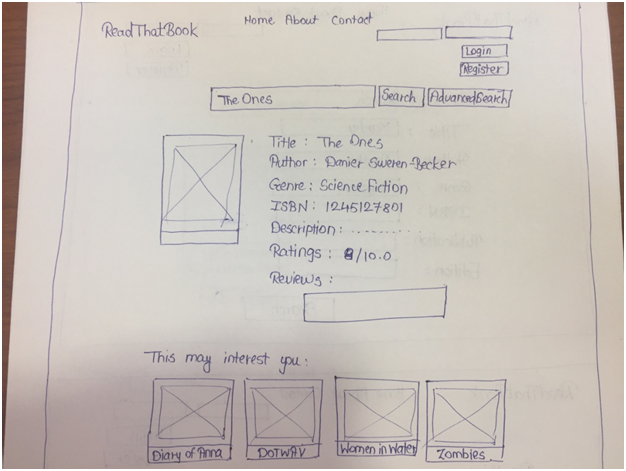 Home About Contact
ReadThatBook
Login
Register
The Ones
Search
AdvancedSearch
Title : The Ones
Author : Danier Sweren-Becker
Genre : Science Fiction
ISBN : 1245127801
Description : ..........
Ratings : 8/10.0
Reviews :
This may interest you :
Diary of Anna
DOTWAV
Women in Water
Zombies